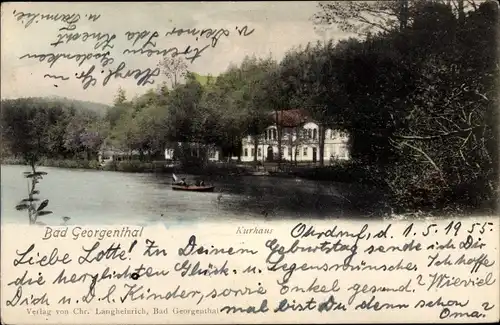 u. Familie,
v. Deiner
treuen Ida Knecht
Herzl. Gedenken
u.
Bad Georgenthal
Kurhaus
Ohrdruf, d. 1.5.1955
Liebe Lotte! Zu Deinem Geburtstag sende ich Dir
die herzlichsten Glück- u. Segenswünsche. Ich hoffe
Dich u. D. l. Kinder, sowie Enkel gesund? Wieviel
mal bist Du denn schon Oma?
Verlag von Chr. Langheinrich, Bad Georgenthal